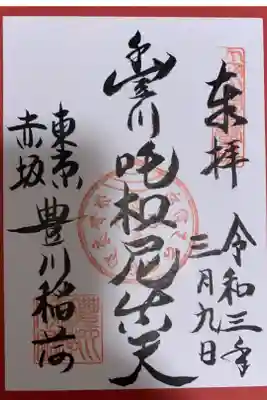 奉拝
令和三年
三月九日
豐川吒枳尼真天
東京
赤坂
豊川稲荷